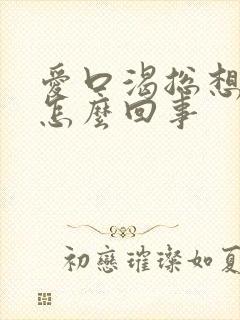 愛口渴總想
怎麼回事
初戀璀璨如夏